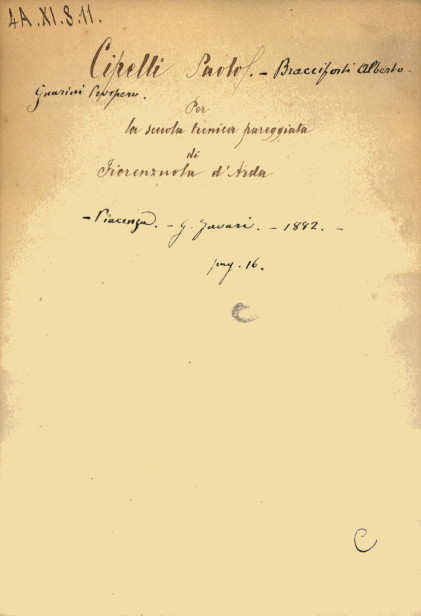 4A.XI.8.11.
Cipelli Paolo. - Bracciforti Alberto -
Guarini Prospero.
Per
la scuola tecnica pareggiata
di
Fiorenzuola d'Arda
- Piacenza. - G. Tavari. - 1882. -
pag. 16.
C
C